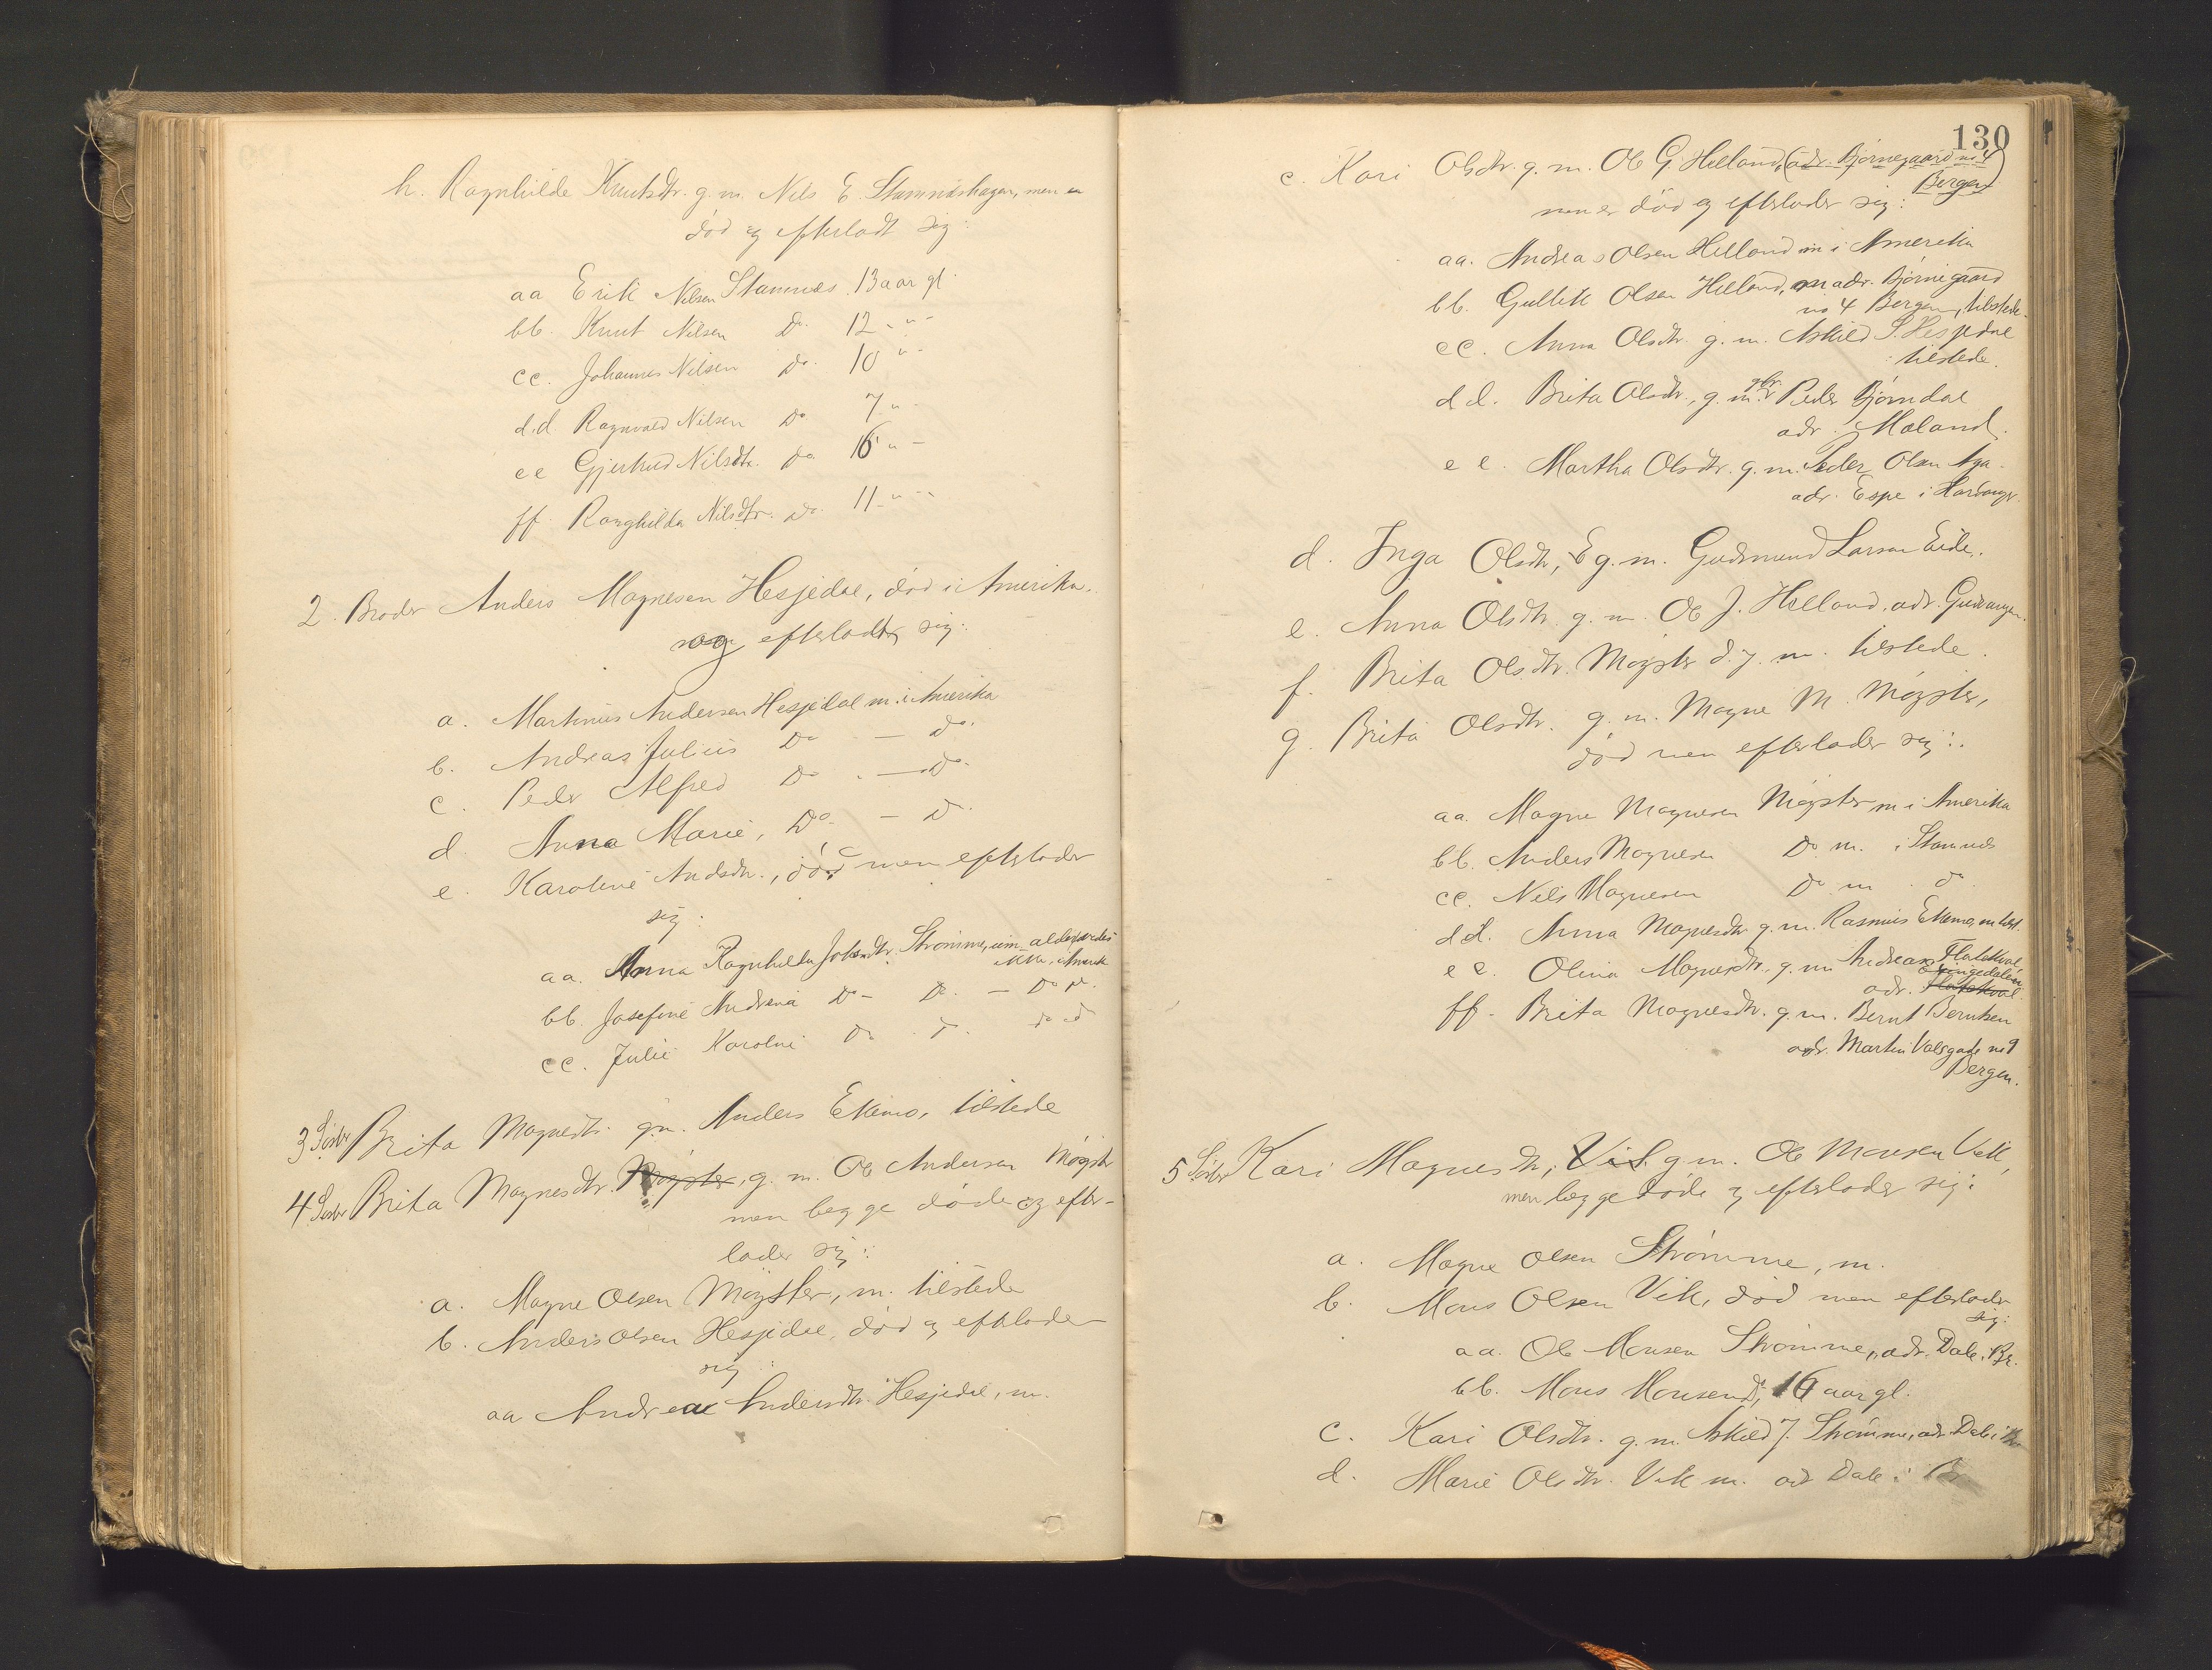 h. Ragnhilde Knutsdtr. g.m. Nils E. Stamneshagen, men er
død og efterladt sig:
aa Erik Nilsen Stamnes 13 aar gl.
bb. Knut Nilsen Do. 12 " -
cc. Johannes Nilsen Do. 10 " -
d.d. Ragnvald Nilsen Do 7 " -
ee Gjertrud Nilsdtr. Do. 16 " -
ff. Ranghilda Nilsdtr. Do. 11 " -
2. Broder Anders Magnesen Hesjedal, død i Amerika.
og efterladt sig:
a. Martinus Andersen Hesjedal m. i Amerika
b. Andreas Julius Do - Do.
c. Peder Alfred Do - Do.
d. Anna Marie, Do. - Do.
e. Karoline Andsdtr., død men efterlader
sig:
aa. Anna Ragnhilda Johsdtr. Strømme, um alder
i Amerik
bb. Josefine Andrena Do - Do. - Do
cc. Julie Karoline Do Do. do do
3 Søster Brita Magnesdtr. g.m. Anders Ekemo, tilstede
4 Søster Brita Magnesdtr. Møgster, g. m. Ole Andersen Møgster
men begge døde og efter-
lader sig:
a. Magne Olsen Møgster, m. tilstede
b. Anders Olsen Hesjedal, død og efterlader
sig:
aa Andrea Andersdtr. Hesjedal, m.
130
c. Kari Olsdtr. g.m. Ole G. Helland, (adr. Bjørnegaard no 4
Bergen)
men er død og efterlader sig:
aa. Andreas Olsen Helland m i Amerika
bb. Gullik Olsen Helland, m adr. Bjørnegaard
no 4 Bergen, tilstede.
cc. Anna Olsdtr. g. m. Askild S. Hesjedal
tilstede.
dd. Brita Olsdtr., g. m. gbr. Peder Bjørndal
adr. Moland.
ee. Martha Olsdtr. g. m. Peder Olsen Aga.
adr. Espe i Hardanger.
d. Inga Olsdtr, E g. m. Gudmund Larsen Eide.
e. Anna Olsdtr. g. m. Ole J. Helland, adr. Gudvangen.
f. Brita Olsdtr. Møgster d.y. m. tilstede.
g. Brita Olsdtr. g. m. Magne M. Møgster,
død men efterlader sig:
aa. Magne Magnesen Møgster m i Amerika
bb. Anders Magnesen Do m. i Stamnes
cc. Nils Magnesen Do m. do
dd. Anna Magnesdtr. g. m. Rasmus Ekemo, m tilst.
ee. Olina Magnesdtr. g. m. Andreas Flatekval,
Eksingedalen
adr. Flatekval.
ff. Brita Magnesdtr. g. m. Bernt Berntsen
adr. Martin Valsgade no 9
Bergen.
5 Søster Kari Magnesdtr., Vik g m. Ole Monsen Vik,
men begge døde og efterlader sig:
a. Magne Olsen Strømme, m.
b. Mons Olsen Vik, død men efterlader
sig:
aa. Ole Monsen Strømme, adr. Dale i Br.
bb. Mons Monsen do, 16 aar gl.
c. Kari Olsdtr. g. m. Askild J. Strømme, adr. Dale i Br
d. Marie Olsdtr. Vik m. adr Dale i Br